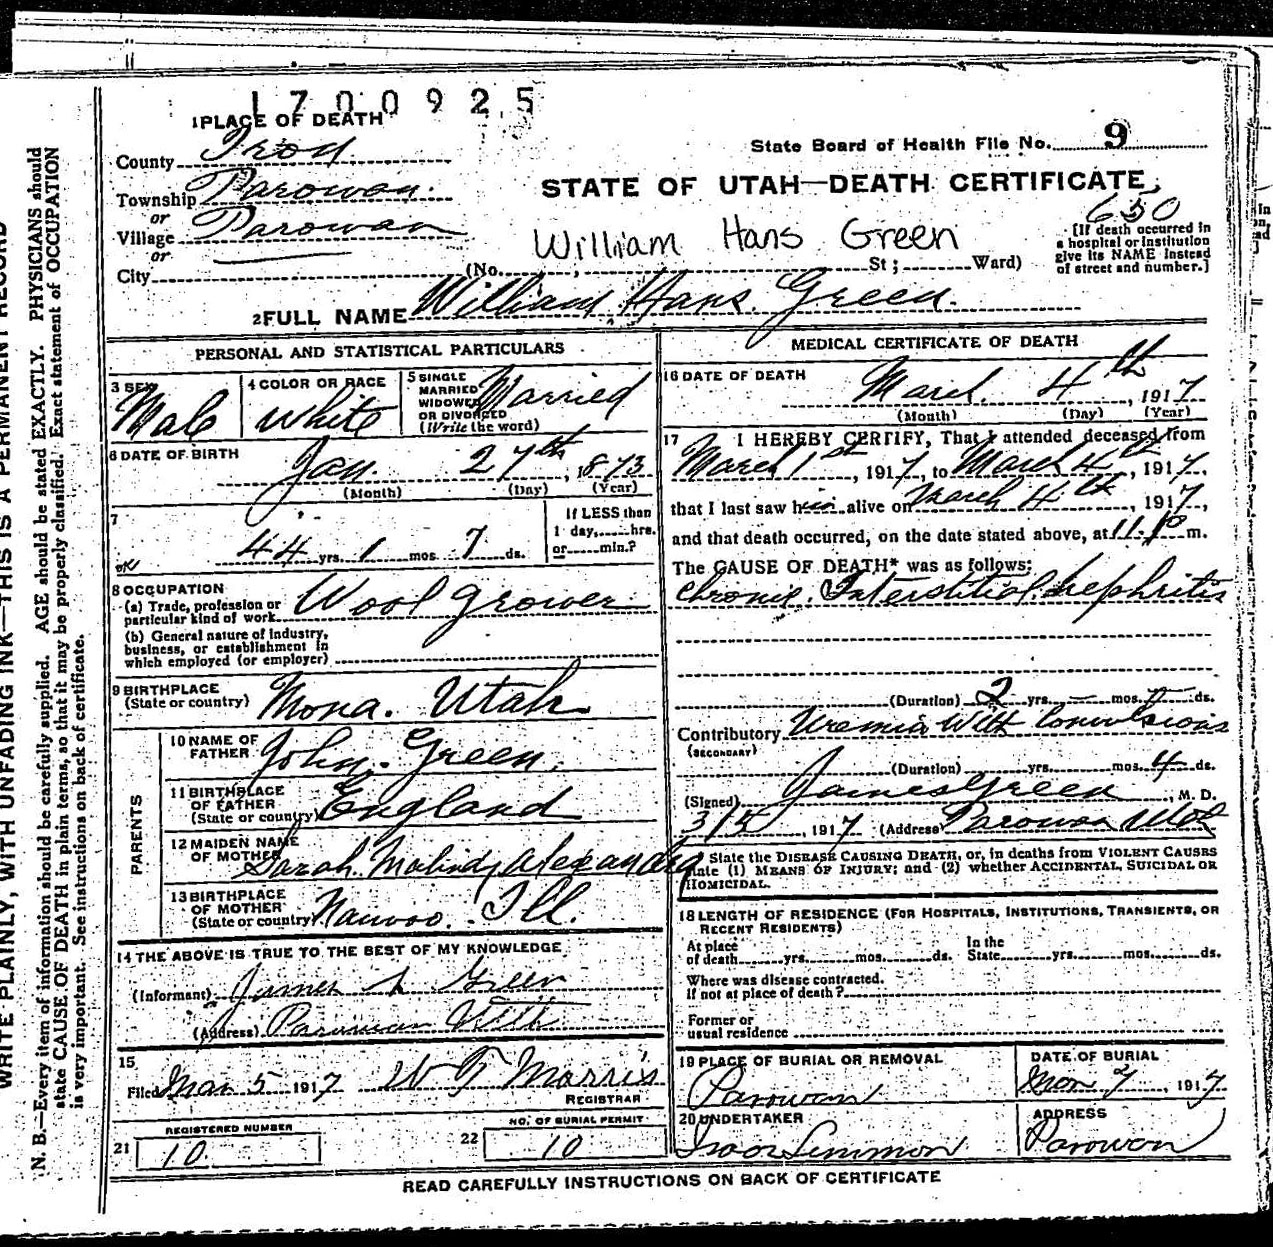 1700925
1 PLACE OF DEATH
County Iron
State Board of Health File No. 9
Township Parowan
STATE OF UTAH—DEATH CERTIFICATE
or
Village Parowan
650
or
City
William Hans Green
(No. , St; Ward)
[If death occurred in
a hospital or institution
give its NAME instead
of street and number.]
2 FULL NAME William Hans Green
PERSONAL AND STATISTICAL PARTICULARS
3 SEX
Male
4 COLOR OR RACE
White
5 SINGLE
MARRIED
WIDOWED
OR DIVORCED
(Write the word)
Married
6 DATE OF BIRTH
Jan. 27th, 1873
(Month) (Day) (Year)
7
44 yrs. 1 mos. 7 ds.
If LESS than
1 day, hrs.
or min.?
OK
8 OCCUPATION
(a) Trade, profession or
particular kind of work Wool grower
(b) General nature of industry,
business, or establishment in
which employed (or employer)
9 BIRTHPLACE
(State or country) Mona. Utah.
PARENTS
10 NAME OF
FATHER John Green
11 BIRTHPLACE
OF FATHER
(State or country) England
12 MAIDEN NAME
OF MOTHER Sarah Malinda Alexandra
13 BIRTHPLACE
OF MOTHER
(State or country) Nauvoo. Ill.
14 THE ABOVE IS TRUE TO THE BEST OF MY KNOWLEDGE
(Informant) James Green
(Address) Parowan Utah
15
Filed Mar 5 1917 W F Morris
REGISTRAR
REGISTERED NUMBER
21 10
NO. OF BURIAL PERMIT
22 10
MEDICAL CERTIFICATE OF DEATH
16 DATE OF DEATH
March 4th, 1917
(Month) (Day) (Year)
17 I HEREBY CERTIFY, That I attended deceased from
March 1st, 1917, to March 4th, 1917,
that I last saw him alive on March 4th, 1917,
and that death occurred, on the date stated above, at 11.1 P m.
The CAUSE OF DEATH* was as follows:
Chronic Interstitial nephritis
(Duration) 2 yrs. — mos. — ds.
Contributory Uremia With Convulsions
(SECONDARY)
(Duration) yrs. mos. 4 ds.
(Signed) James Green, M. D.
3/5, 1917 (Address) Parowan Utah
State the DISEASE CAUSING DEATH, or, in deaths from VIOLENT CAUSES
state (1) MEANS OF INJURY; and (2) whether ACCIDENTAL, SUICIDAL OR
HOMICIDAL.
18 LENGTH OF RESIDENCE (FOR HOSPITALS, INSTITUTIONS, TRANSIENTS, OR
RECENT RESIDENTS)
At place
of death yrs. mos. ds.
In the
State yrs. mos. ds.
Where was disease contracted.
if not at place of death?
Former or
usual residence
19 PLACE OF BURIAL OR REMOVAL
Parowan
DATE OF BURIAL
Mar 7, 1917
20 UNDERTAKER
ADDRESS
Parowan
READ CAREFULLY INSTRUCTIONS ON BACK OF CERTIFICATE
WRITE PLAINLY, WITH UNFADING INK—THIS IS A PERMANENT RECORD
N. B.—Every item of information should be carefully supplied. AGE should be stated EXACTLY. PHYSICIANS should
state CAUSE OF DEATH in plain terms, so that it may be properly classified. Exact statement of OCCUPATION
is very important. See instructions on back of certificate.